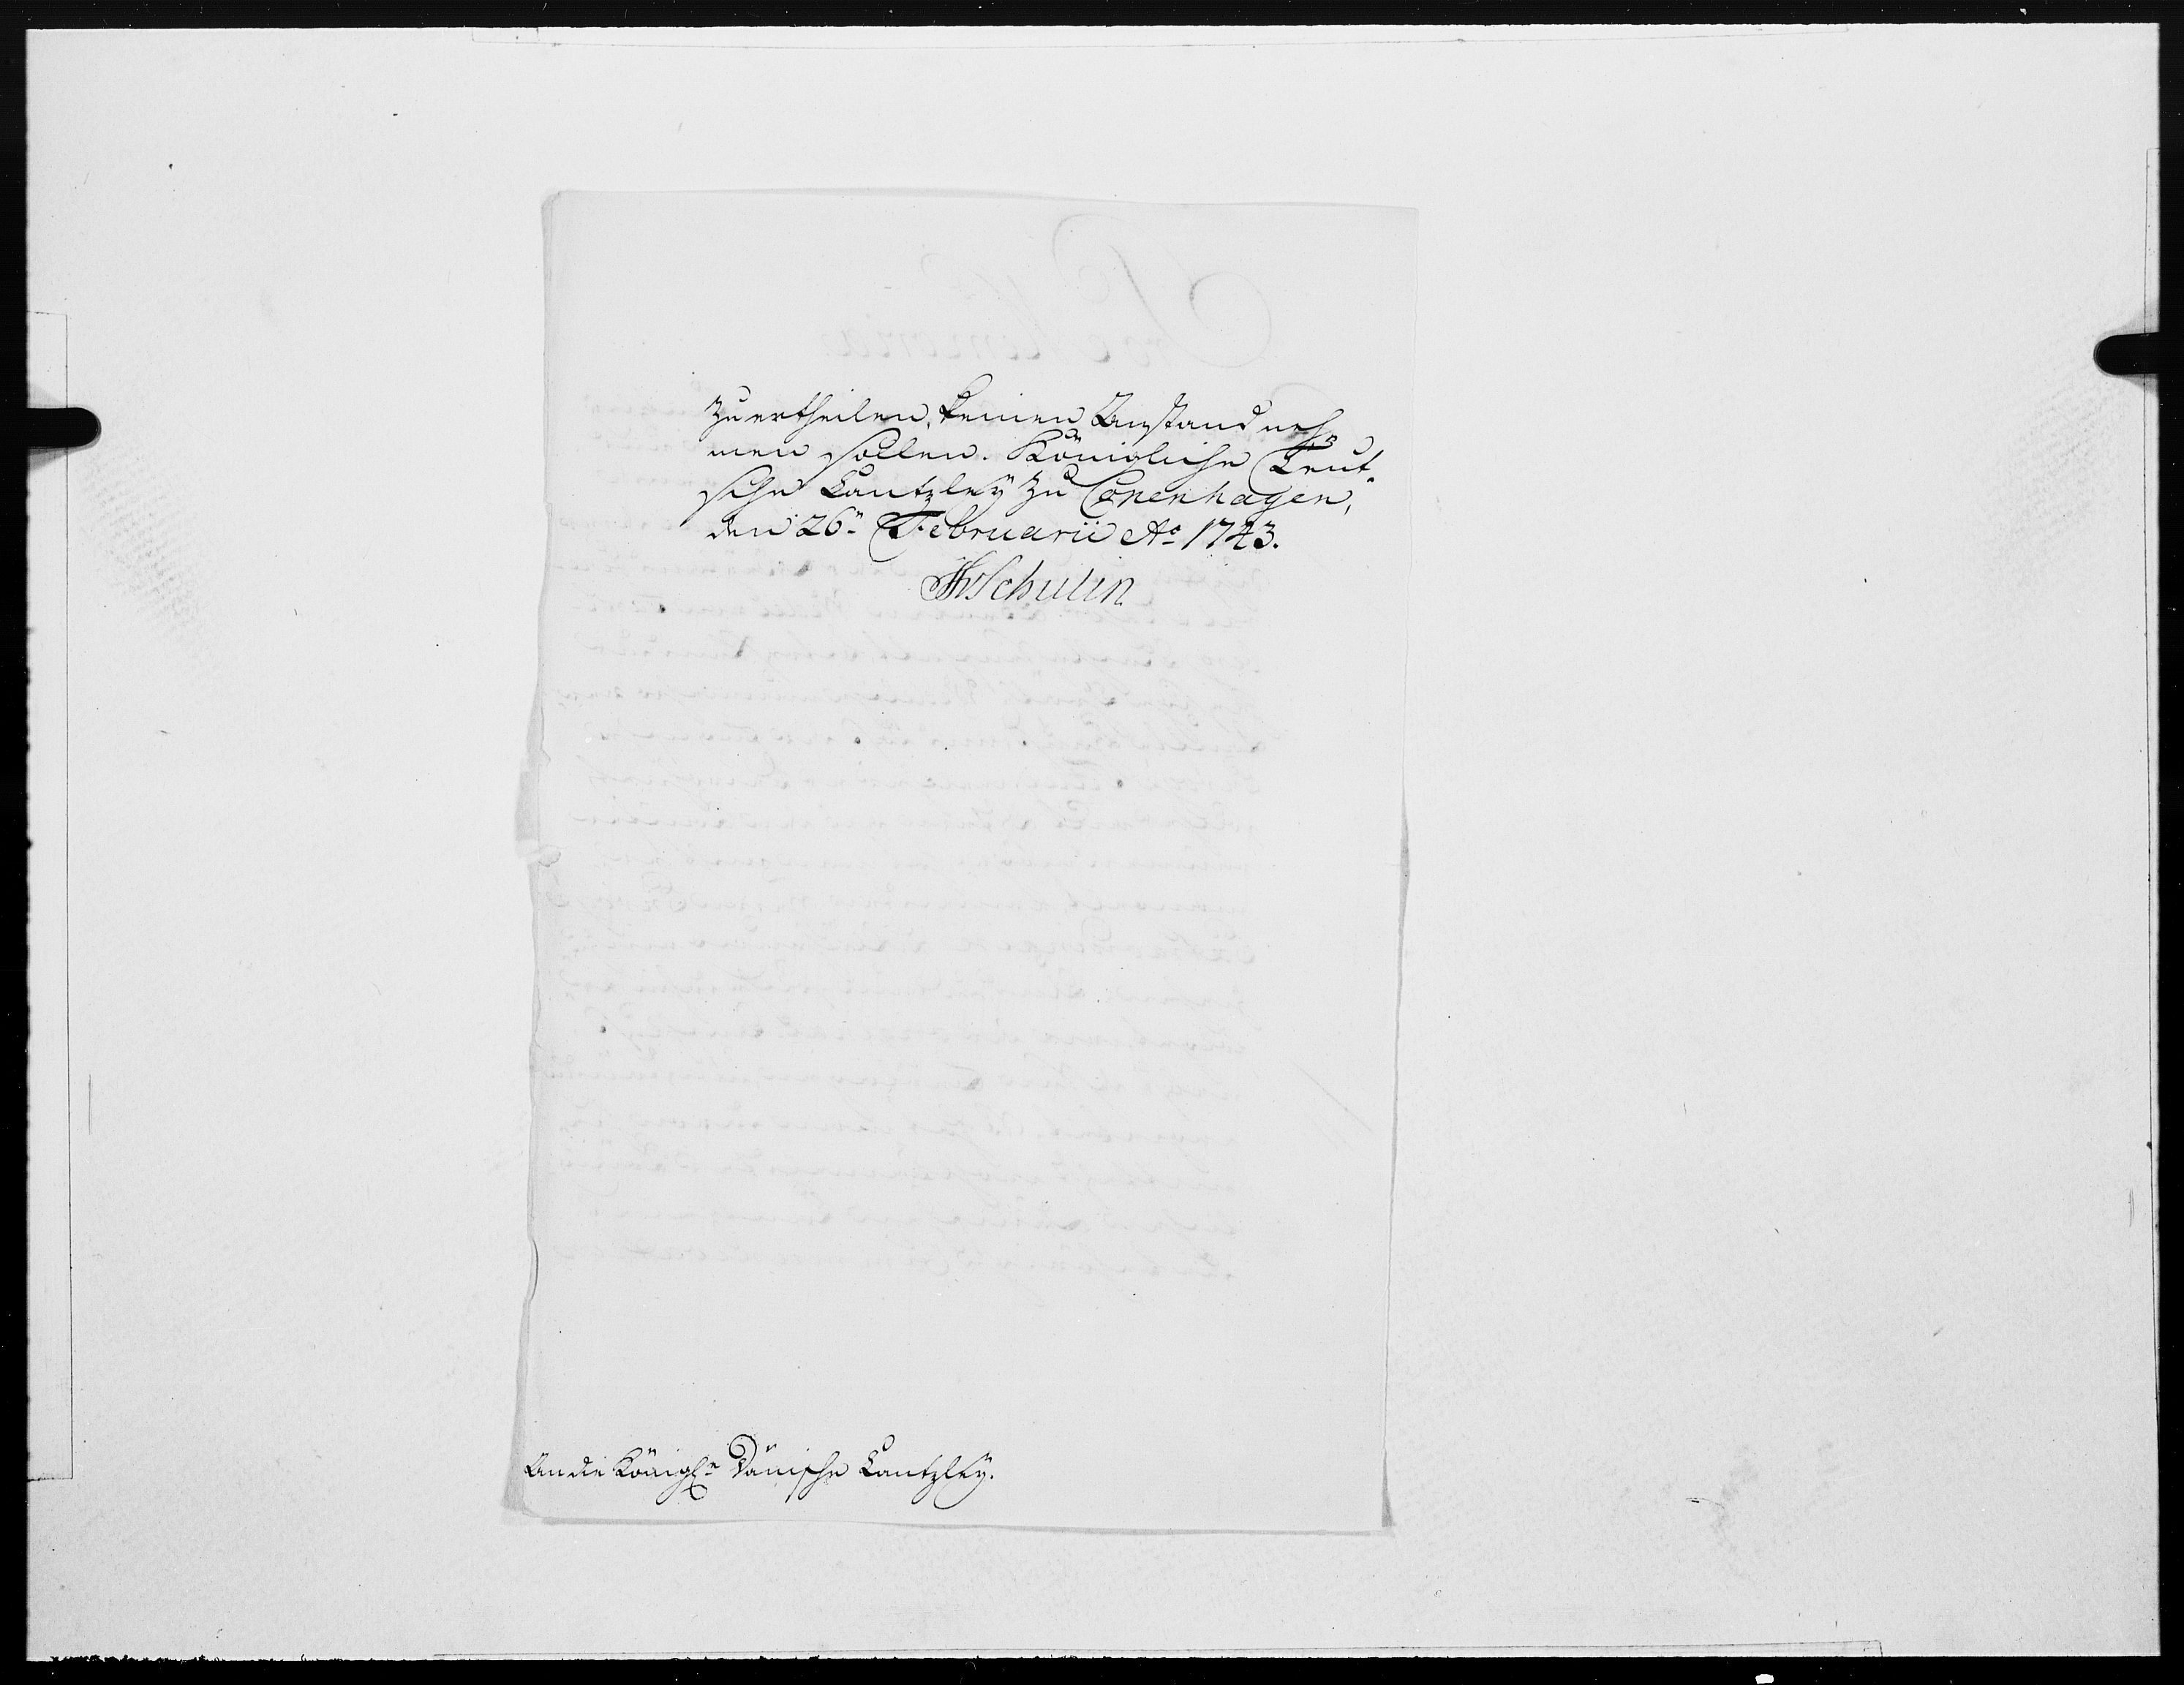 zu ertheilen, keinen Anstand neh-
men sollen. Königliche Teut-
sche Cantzley zu Copenhagen,
den 26ⁿ Februarii Aº 1743.
JHvSchulin
An die Königl.ᵉ Dänische Cantzley.